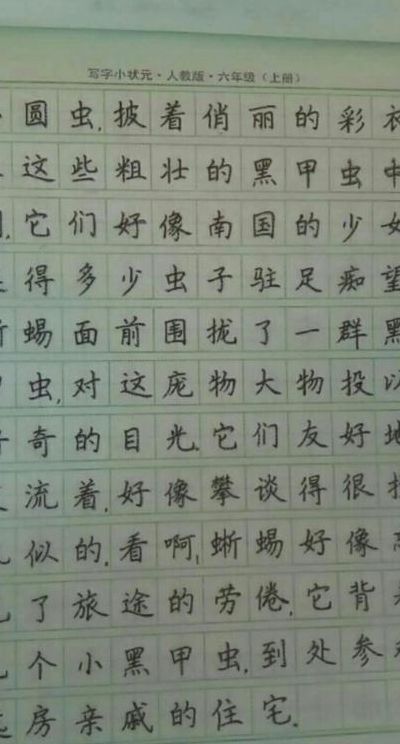 写字小状元·人教版·六年级（上册）
圆虫,披着俏丽的彩衣
这些粗壮的黑甲虫中
,它们好像南国的少女
得多少虫子驻足痴望
蜴面前围拢了一群黑
虫,对这庞物大物投以
奇的目光.它们友好地
流着,好像攀谈得很
似的.看啊,蜥蜴好像
了旅途的劳倦,它背
个小黑甲虫,到处参
房亲戚的住宅.